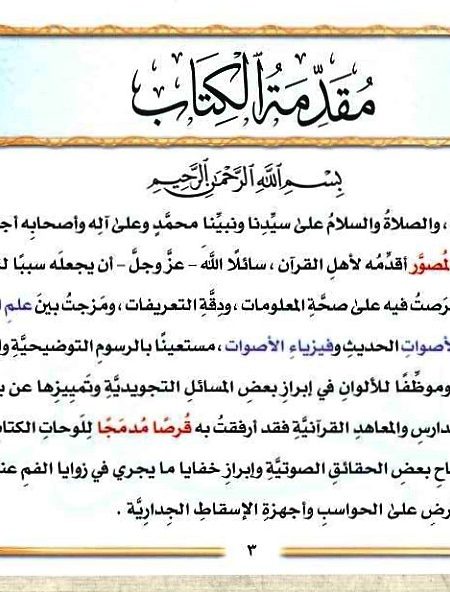 مُقَدِّمَةُ الْكِتَابِ
بِسْمِ اللَّهِ الرَّحْمَٰنِ الرَّحِيمِ
، والصلاةُ والسلامُ علىٰ سيِّدِنا ونبيِّنا محمَّدٍ وعلىٰ آلِه وأصحابِه
لمُصوَّر أقدِّمُه لأهلِ القرآنِ ، سائلًا اللَّهَ – عزَّ وجلَّ – أن يجعلَه سببًا
رَصتُ فيه علىٰ صحَّةِ المعلومات ، ودِقَّةِ التعريفات ، ومَزجتُ بينَ علمِ
لأصواتِ الحديثِ وفيزياءِ الأصوات ، مستعينًا بالرسومِ التوضيحيَّةِ
وموظِّفًا للألوانِ في إبرازِ بعضِ المسائلِ التجويديَّةِ وتَمييزِها عن
دارسِ والمعاهدِ القرآنيَّةِ فقد أرفقتُ به قُرصًا مُدمَجًا لِلَوحاتِ الكتا
احِ بعضِ الحقائقِ الصوتيَّةِ وإبرازِ خفايا ما يجري في زوايا الفمِ
رضِ علىٰ الحواسبِ وأجهزةِ الإسقاطِ الجِداريَّة .
٣